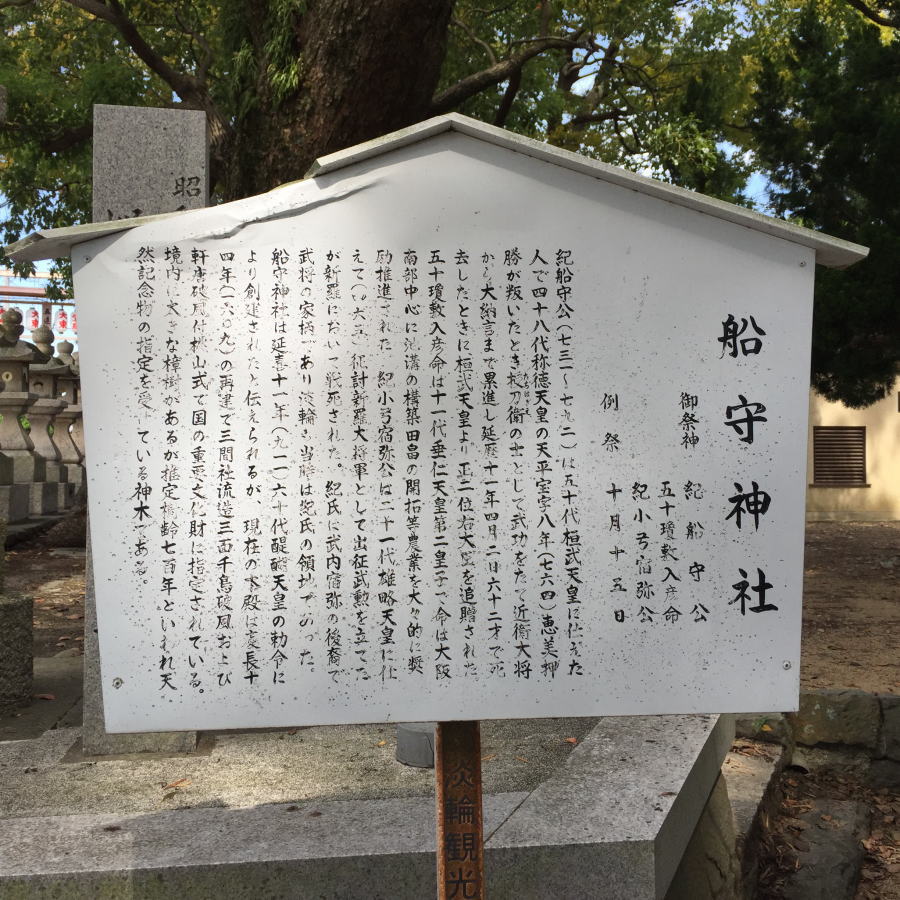 船守神社
御祭神 紀船守公
五十瓊敷入彦命
紀小弓宿弥公
例祭 十月十五日
紀船守公(七三一〜七九二)は五十代桓武天皇に仕えた
人で四十八代称徳天皇の天平宝字八年(七六四)恵美押
勝が叛いたとき授刀衛の士として武功をたて近衛大将
から大納言まで累進し延暦十一年四月二日六十二才で死
去したときに桓武天皇より正二位右大臣を追贈された
五十瓊敷入彦命は十一代垂仁天皇第二皇子で命は大阪
南部中心に池溝の構築田畠の開拓等農業を大々的に奨
励推進された 紀小弓宿弥公は二十一代雄略天皇に仕
えて(四六五)征討新羅大将軍として出征武勲を立てた
が新羅において戦死された。紀氏は武内宿弥の後裔で
武将の家柄であり淡輪も当時は紀氏の領地であった。
船守神社は延喜十一年(九一一)六十代醍醐天皇の勅令に
より創建されたと伝えられるが、現在の本殿は慶長十
四年(一六〇九)の再建で三間社流造三面千鳥破風および
軒唐破風付桃山式で国の重要文化財に指定されている。
境内に大きな樟樹があるが推定樹齢七百年といわれ天
然記念物の指定を受けている神木である。
昭
淡輪観光
大東